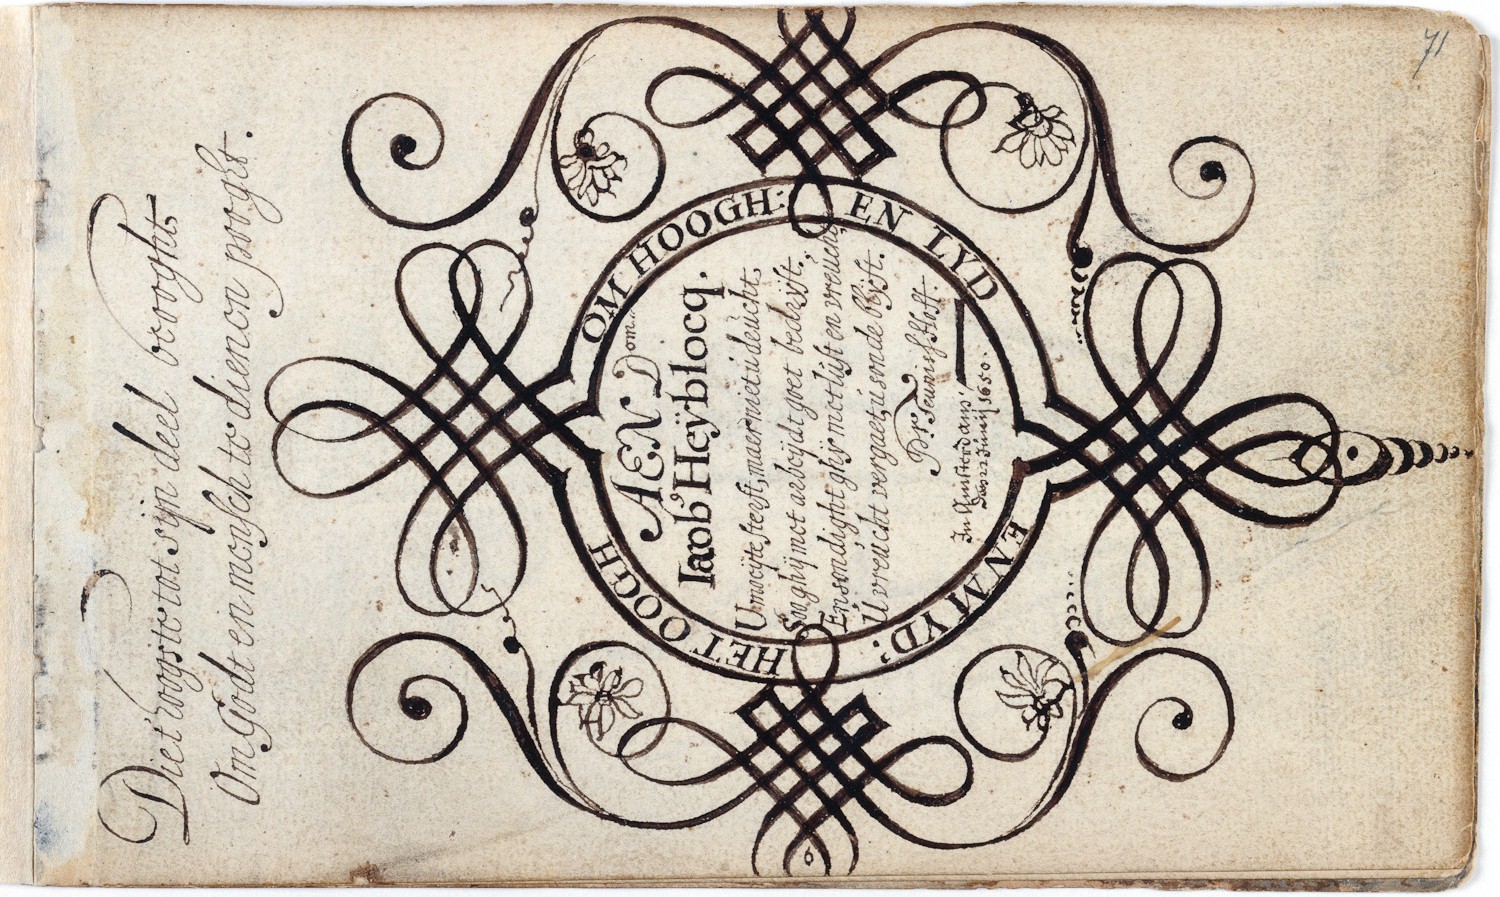 Die't hoogste tot sijn deel beooght,
Om Godt en mensch te dienen pooght.
HET OOGH OM HOOGH: EN LYD EN MYD:
AEN Dom..
Iacob's Heÿblocq.
U moeijte sterft, maer niet ú deúcht,
Soo ghij met arbeijdt goet bedrÿft.
En sondight ghÿ met lúst en vreúcht,
Ú vreúcht vergaet, ú sonde blÿft.
Pr. Teunisz Hoff.
In Amsterdam.
den 22 Júnij 1650.